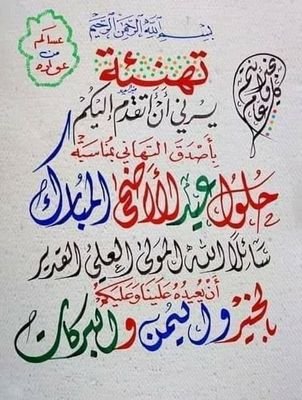 بسم الله الرحمن الرحيم
عساكم
من
عواده
تهنئة
كل عام وأنتم بخير
يسرني أن أتقدم إليكم
بأصدق التهاني بمناسبة
حلول عيد الأضحى المبارك
سائلا الله المولى العلي القدير
أن يعيده علينا وعليكم
بالخير واليمن والبركات